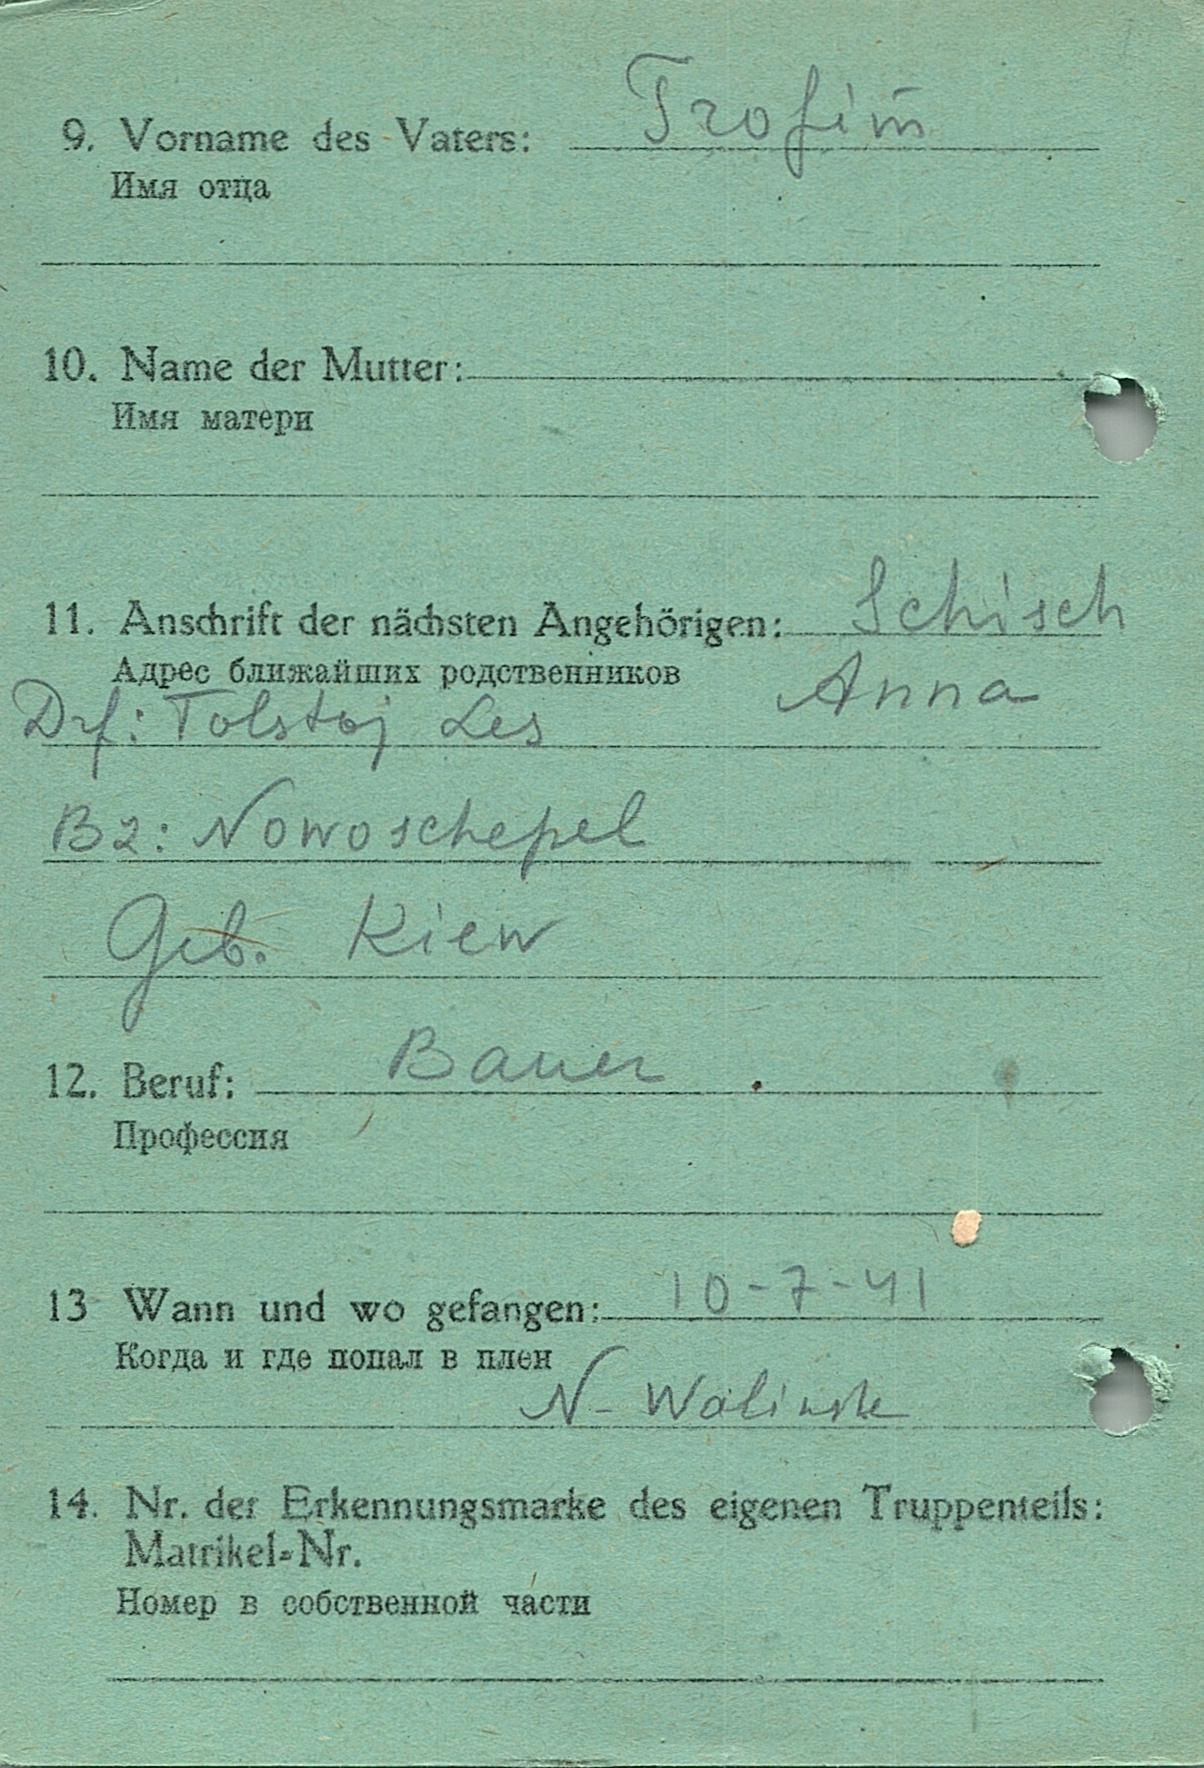 9. Vorname des Vaters: Trofim̄
Имя отца
10. Name der Mutter:
Имя матери
11. Anschrift der nächsten Angehörigen: Schisch
Адрес ближайших родственников Anna
Drf: Tolstoj Les
Bz: Nowoschepel
Geb. Kiew
12. Beruf: Bauer
Профессия
13 Wann und wo gefangen: 10-7-41
Когда и где попал в плен
N- Walinsk
14. Nr. der Erkennungsmarke des eigenen Truppenteils:
Matrikel-Nr.
Номер в собственной части